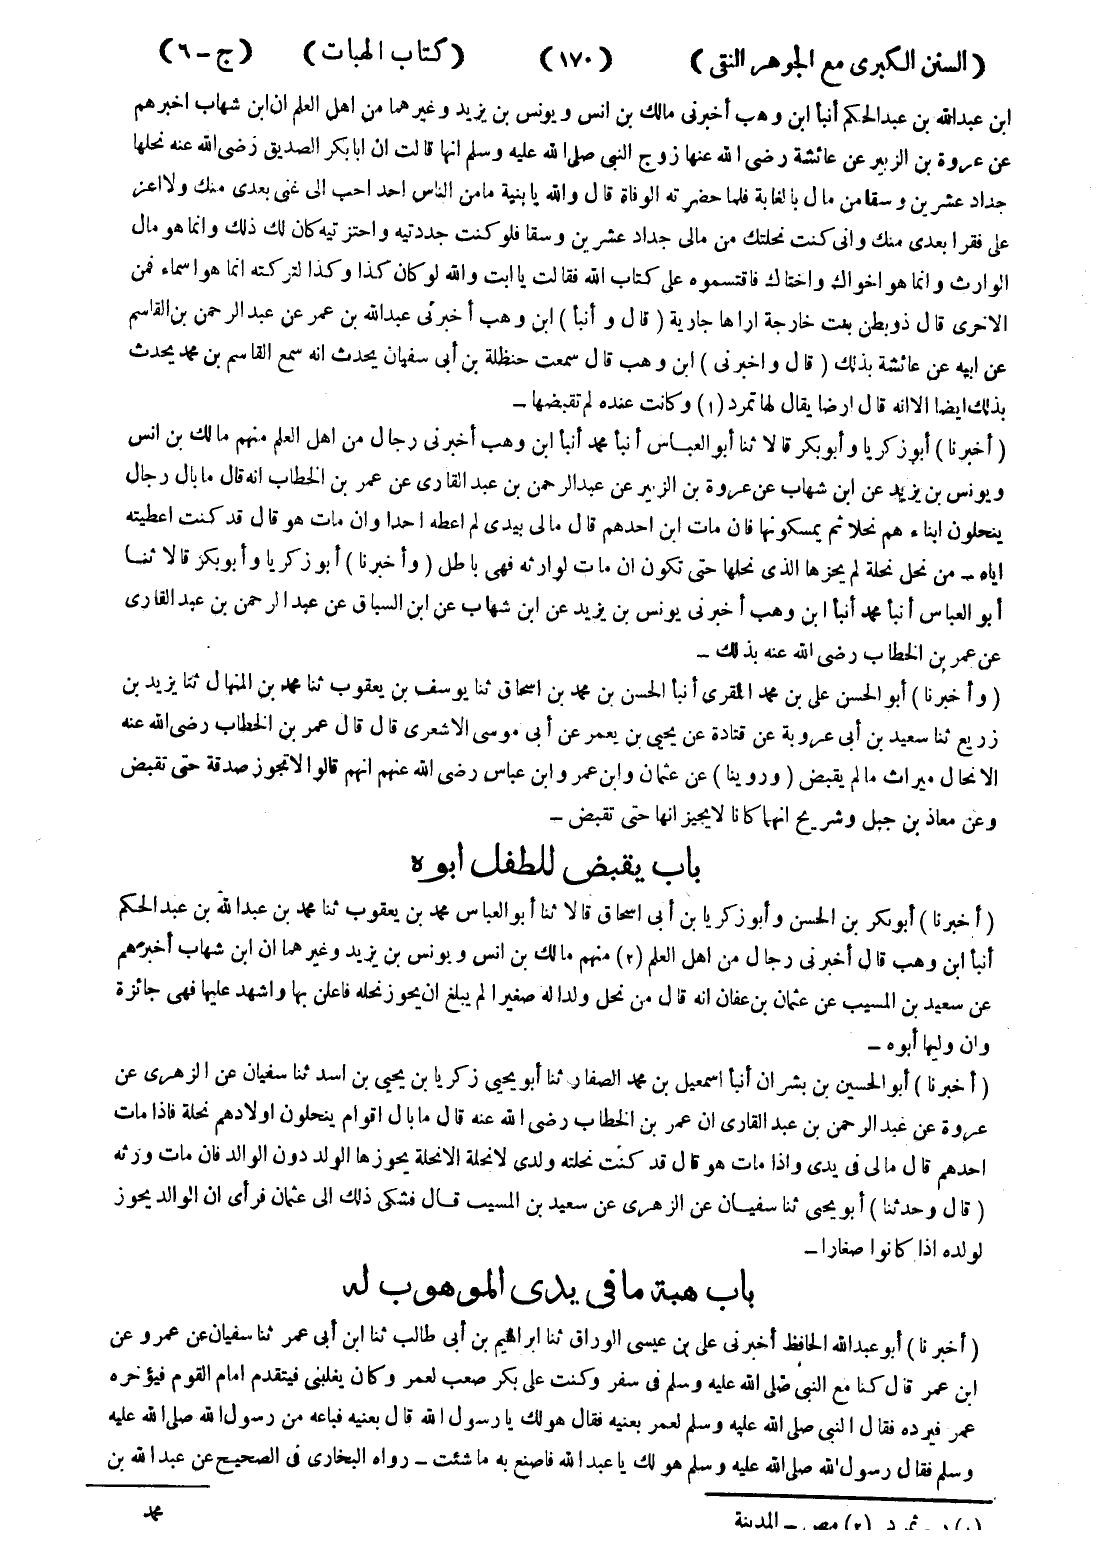 (السنن الكبرى مع الجوهر النقى) (١٧٠) (كتاب الهبات) (ج - ٦)
ابن عبدالله بن عبدالحكم أنبأ ابن وهب أخبرنى مالك بن انس ويونس بن يزيد وغيرهما من اهل العلم ان ابن شهاب اخبرهم
عن عروة بن الزبير عن عائشة رضى الله عنها زوج النبى صلى الله عليه وسلم انها قالت ان ابا بكر الصديق رضى الله عنه نحلها
جداد عشرين وسقا من مال بالغابة فلما حضرته الوفاة قال والله يا بنية ما من الناس احد احب الى غنى بعدى منك ولا اعز
على فقرا بعدى منك وانى كنت نحلتك من مالى جداد عشرين وسقا فلو كنت جددتيه واحتزتيه كان لك ذلك وانما هو مال
الوارث وانما هو اخواك واختاك فاقتسموه على كتاب الله فقالت يا ابت والله لو كان كذا وكذا لتركته انما هو اسماء فمن
الاخرى قال ذو بطن بنت خارجة اراها جارية (قال وأنبأ) ابن وهب أخبرنى عبدالله بن عمر عن عبدالرحمن بن القاسم
عن ابيه عن عائشة بذلك (قال واخبرنى) ابن وهب قال سمعت حنظلة بن أبى سفيان يحدث انه سمع القاسم بن محمد يحدث
بذلك ايضا الا انه قال ارضا يقال لها تمرد (١) وكانت عنده لم تقبضها -
(أخبرنا) أبو زكريا وأبو بكر قالا ثنا أبو العباس أنبأ محمد أنبأ ابن وهب أخبرنى رجال من اهل العلم منهم مالك بن انس
ويونس بن يزيد عن ابن شهاب عن عروة بن الزبير عن عبدالرحمن بن عبد القارى عن عمر بن الخطاب انه قال ما بال رجال
ينحلون ابناءهم نحلا ثم يمسكونها فان مات ابن احدهم قال مالى بيدى لم اعطه احدا وان مات هو قال قد كنت اعطيته
اياه - من نحل نحلة لم يحزها الذى نحلها حتى تكون ان مات لوارثه فهى باطل (وأخبرنا) أبو زكريا وأبو بكر قالا ثنا
أبو العباس أنبأ محمد أنبأ ابن وهب أخبرنى يونس بن يزيد عن ابن شهاب عن ابن السباق عن عبدالرحمن بن عبد القارى
عن عمر بن الخطاب رضى الله عنه بذلك -
(وأخبرنا) أبو الحسن على بن محمد المقرى أنبأ الحسن بن محمد بن اسحاق ثنا يوسف بن يعقوب ثنا محمد بن المنهال ثنا يزيد بن
زريع ثنا سعيد بن أبى عروبة عن قتادة عن يحيى بن يعمر عن أبى موسى الاشعرى قال قال عمر بن الخطاب رضى الله عنه
الانحال ميراث ما لم يقبض (وروينا) عن عثمان وابن عمر وابن عباس رضى الله عنهم انهم قالوا لا تجوز صدقة حتى تقبض
وعن معاذ بن جبل وشريح انهما كانا لا يجيزانها حتى تقبض -
باب يقبض للطفل ابوه
(أخبرنا) أبو بكر بن الحسن وأبو زكريا بن أبى اسحاق قالا ثنا أبو العباس محمد بن يعقوب ثنا محمد بن عبدالله بن عبدالحكم
أنبأ ابن وهب قال أخبرنى رجال من اهل العلم (٢) منهم مالك بن انس ويونس بن يزيد وغيرهما ان ابن شهاب أخبرهم
عن سعيد بن المسيب عن عثمان بن عفان انه قال من نحل ولدا له صغيرا لم يبلغ ان يحوز نحله فاعلن بها واشهد عليها فهى جائزة
وان وليها أبوه -
(أخبرنا) أبو الحسين بن بشران أنبأ اسمعيل بن محمد الصفار ثنا أبو يحيى زكريا بن يحيى بن اسد ثنا سفيان عن الزهرى عن
عروة عن عبد الرحمن بن عبد القارى ان عمر بن الخطاب رضى الله عنه قال ما بال اقوام ينحلون اولادهم نحلة فاذا مات
احدهم قال مالى فى يدى واذا مات هو قال قد كنت نحلته ولدى لا نحلة الا نحلة يحوزها الولد دون الوالد فان مات ورثه
(قال وحدثنا) أبو يحيى ثنا سفيان عن الزهرى عن سعيد بن المسيب قال فشكى ذلك الى عثمان فرأى ان الوالد يحوز
لولده اذا كانوا صغارا -
باب هبة ما فى يدى الموهوب له
(أخبرنا) أبو عبدالله الحافظ أخبرنى على بن عيسى الوراق ثنا ابراهيم بن أبى طالب ثنا ابن أبى عمر ثنا سفيان عن عمرو عن
ابن عمر قال كنا مع النبى صلى الله عليه وسلم فى سفر وكنت على بكر صعب لعمر وكان يغلبنى فيتقدم امام القوم فيؤخره
عمر فيرده فقال النبى صلى الله عليه وسلم لعمر بعنيه فقال هو لك يا رسول الله قال بعنيه فباعه من رسول الله صلى الله عليه
وسلم فقال رسول الله صلى الله عليه وسلم هو لك يا عبدالله فاصنع به ما شئت - رواه البخارى فى الصحيح عن عبدالله بن
محمد
(١) ر - ثمرد (٢) مص - المدينة